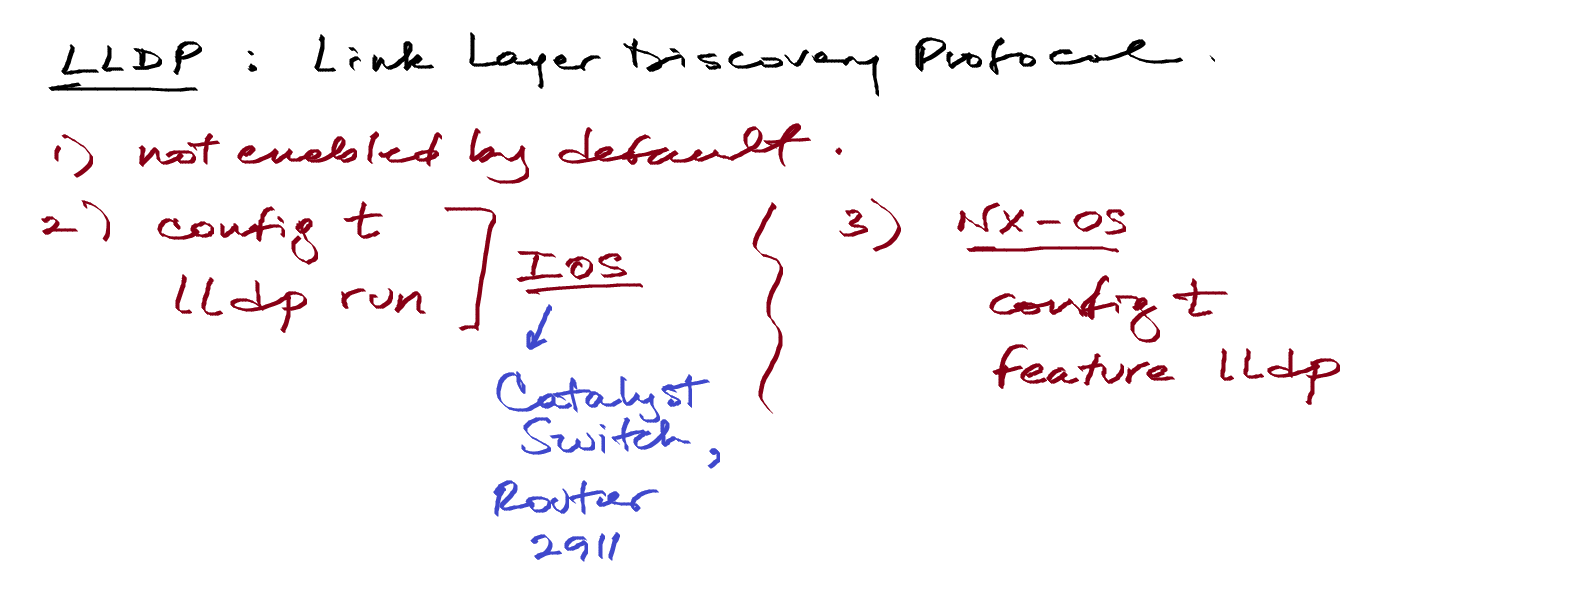 LLDP : Link Layer Discovery Protocol.
1) not enabled by default.
2) config t
lldp run
IOS
Catalyst
Switch,
Router
2911
3) NX-OS
config t
feature lldp